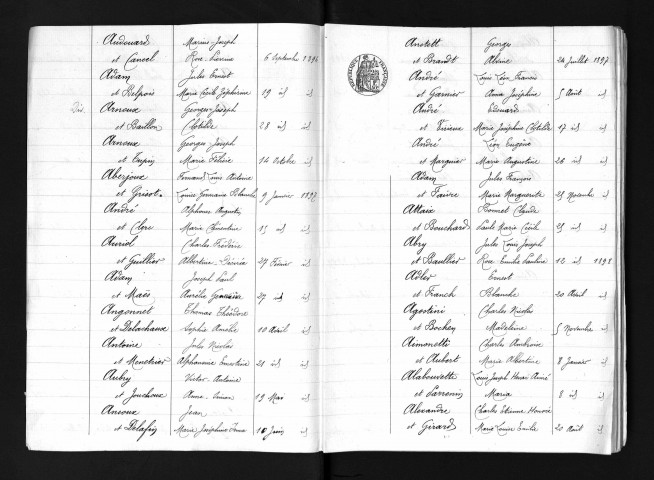 Audouard Marius-Joseph
et Cancel Rose-Pierrine 6 Septembre 1896
Adam Jules Ernest
et Belpois Marie Cécile Zéphirine 19 id id
Div. Arnoux Georges-Joseph
et Baillon Clotilde 28 id id
Arnoux Georges Joseph
et Marie 14 Octobre id
Aberjoux Fernand Louis Antoine
et Grisot Louise Germaine Blanche 9 Janvier 1897
André Alphonse Auguste
et Clere Marie Clémentine 15 id id
Auriol Charles Frédéric
et Guillier Albertine-Désirée 27 Février id
Adam Joseph Paul
et Maës Aurélie 27 id id
Angonnet Thomas Théodore
et Delachaux Sophie Amélie 10 Avril id
Antoine Jules Nicolas
et Menetrier Alphonsine Ernestine 21 id id
Aubry Victor-Antoine
et Jouchoux Anne 19 Mai id
Ansoux Jean
et Marie Joséphine 10 Juin id
Anstett George
et Brandt Albine 24 Juillet 1897
André Louis Léon Francois
et Garnier Anna Joséphine 5 Août id
André Edouard
et Marie Joséphine Clotilde 17 id id
André Léon Eugène
et Marguier Marie Augustine 26 id id
Adam Jules François
et Faivre Marie Marguerite 25 Novembre id
Attaix Bonnet Claude
et Bouchard Paule Marie Cécile 25 id id
Abry Jules Louis Joseph
et Baullier Rose Emilie Pauline 12 id 1898
Adler Ernest
et Franch Blanche 20 Avril id
Agostini Charles Nicolas
et Bochen Madeleine 5 Novembre id
Aimonetti Charles Ambroise
et Aubert Marie Albertine 8 Janvier id
Alabouvette Louis Joseph Henri Aimé
et Parrenin Maria 8 id id
Alexandre Charles Etienne Honoré
et Girard Marie Louise Emilie 20 Août id